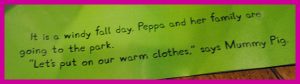 It is a windy fall day. Peppa and her family are
going to the park.
"Let's put on our warm clothes," says Mummy Pig.